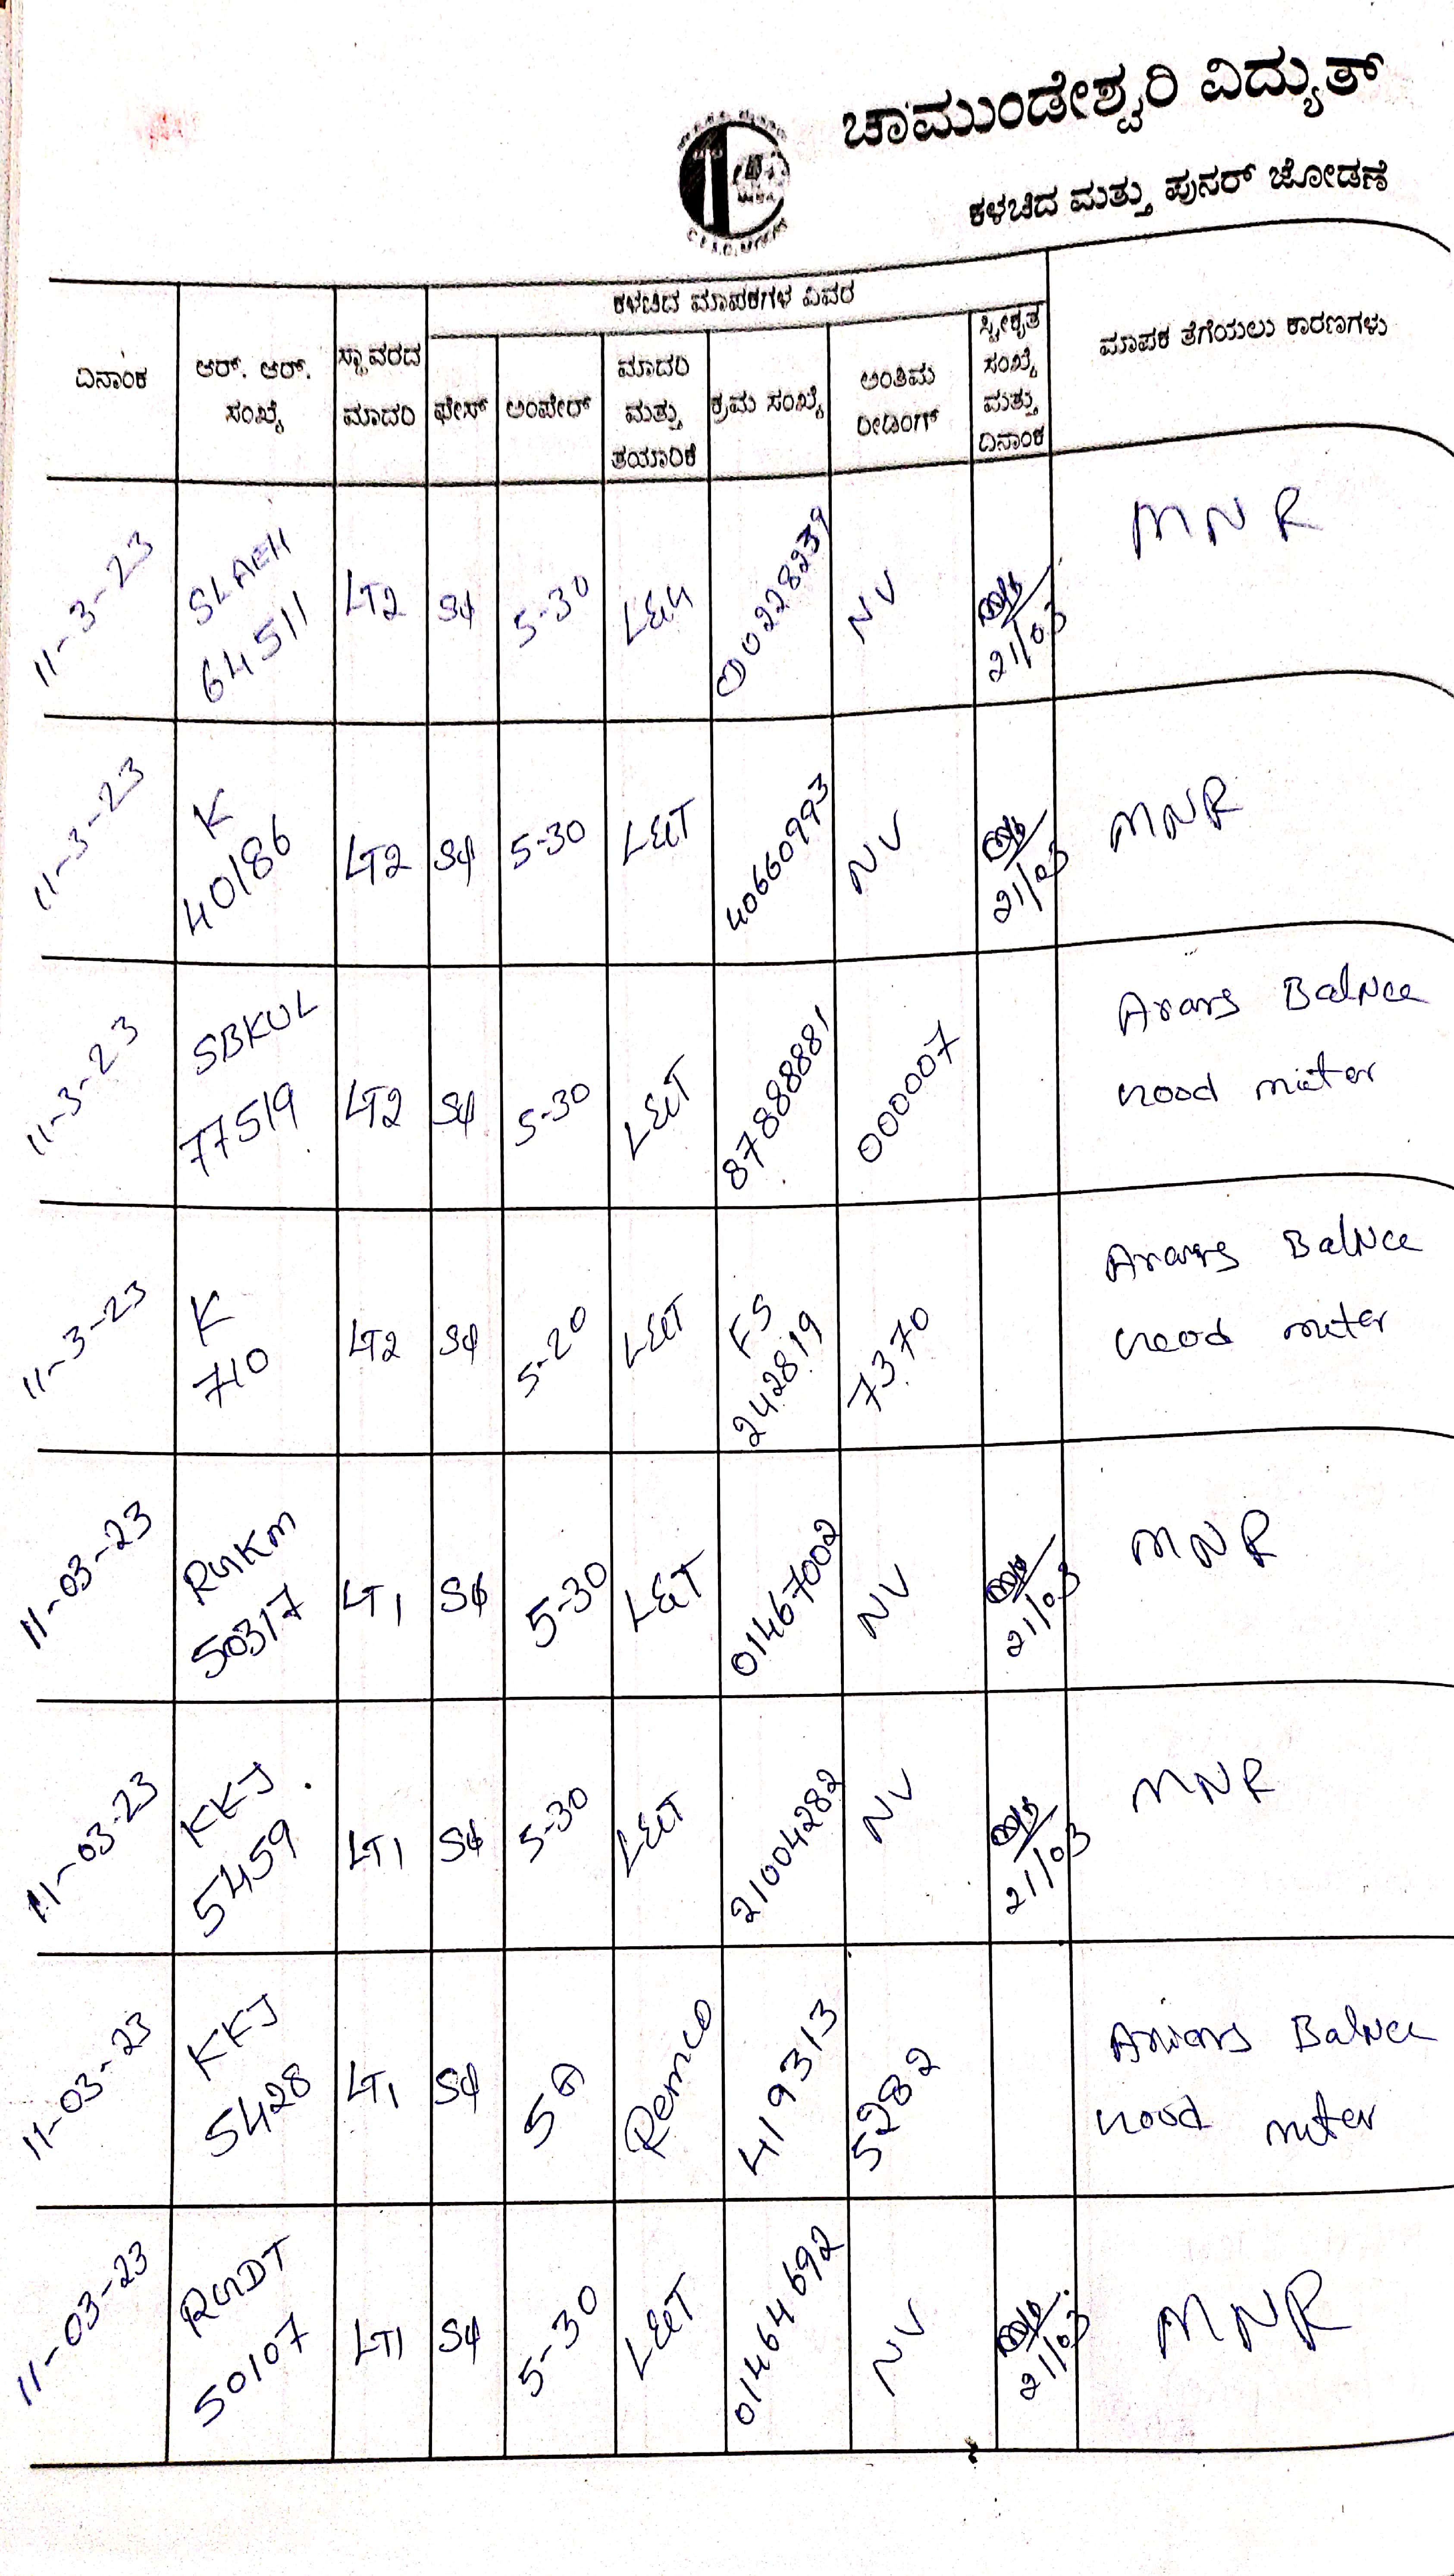 ಚಾಮುಂಡೇಶ್ವರಿ ವಿದ್ಯುತ್
ಕಳಚಿದ ಮತ್ತು ಪುನರ್ ಜೋಡಣೆ
ಕಳಚಿದ ಮಾಪಕಗಳ ವಿವರ
ದಿನಾಂಕ ಆರ್. ಆರ್. ಸಂಖ್ಯೆ ಸ್ಥಾವರದ ಮಾದರಿ ಫೇಸ್ ಅಂಪೇರ್ ಮಾದರಿ ಮತ್ತು ತಯಾರಿಕೆ ಕ್ರಮ ಸಂಖ್ಯೆ ಅಂತಿಮ ರೀಡಿಂಗ್ ಸ್ವೀಕೃತ ಸಂಖ್ಯೆ ಮತ್ತು ದಿನಾಂಕ ಮಾಪಕ ತೆಗೆಯಲು ಕಾರಣಗಳು
11-3-23 SLAEH 64511 LT2 Sφ 5-30 00228239 NV 21/03 MNR
11-3-23 K 40186 LT2 Sφ 5-30 L&T 40660993 NV 21/03 MNR
11-3-23 SBKUL 77519 LT2 Sφ 5-30 L&T 87888881 000007 Arars Balnce
nood meter
11-3-23 K 710 LT2 Sφ 5-20 L&T FS 242819 7370 Arars Balnce
nood meter
11-03-23 RGKM 50317 LT1 Sφ 5-30 L&T 01467002 NV 21/03 MNR
11-03-23 KKJ 5459 LT1 Sφ 5-30 L&T 21004282 NV 21/03 MNR
11-03-23 KKJ 5428 LT1 Sφ 5A Remco 419313 5282 Ariars Balnce
nood meter
11-03-23 RGDT 50107 LT1 Sφ 5-30 L&T 01464692 NV 21/03 MNR